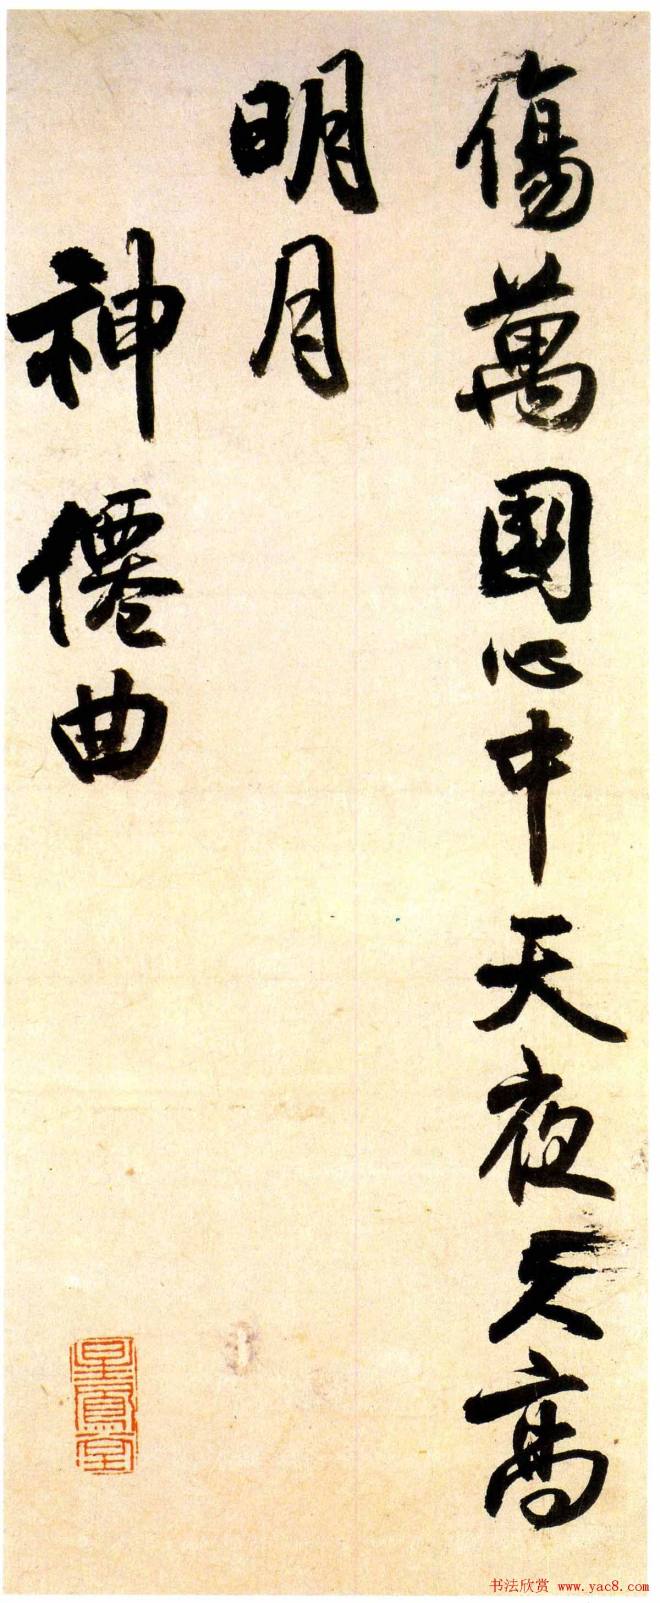 傷萬國心中天夜久高
明月
神僊曲
星鳳堂
书法欣赏 www.yac8.com